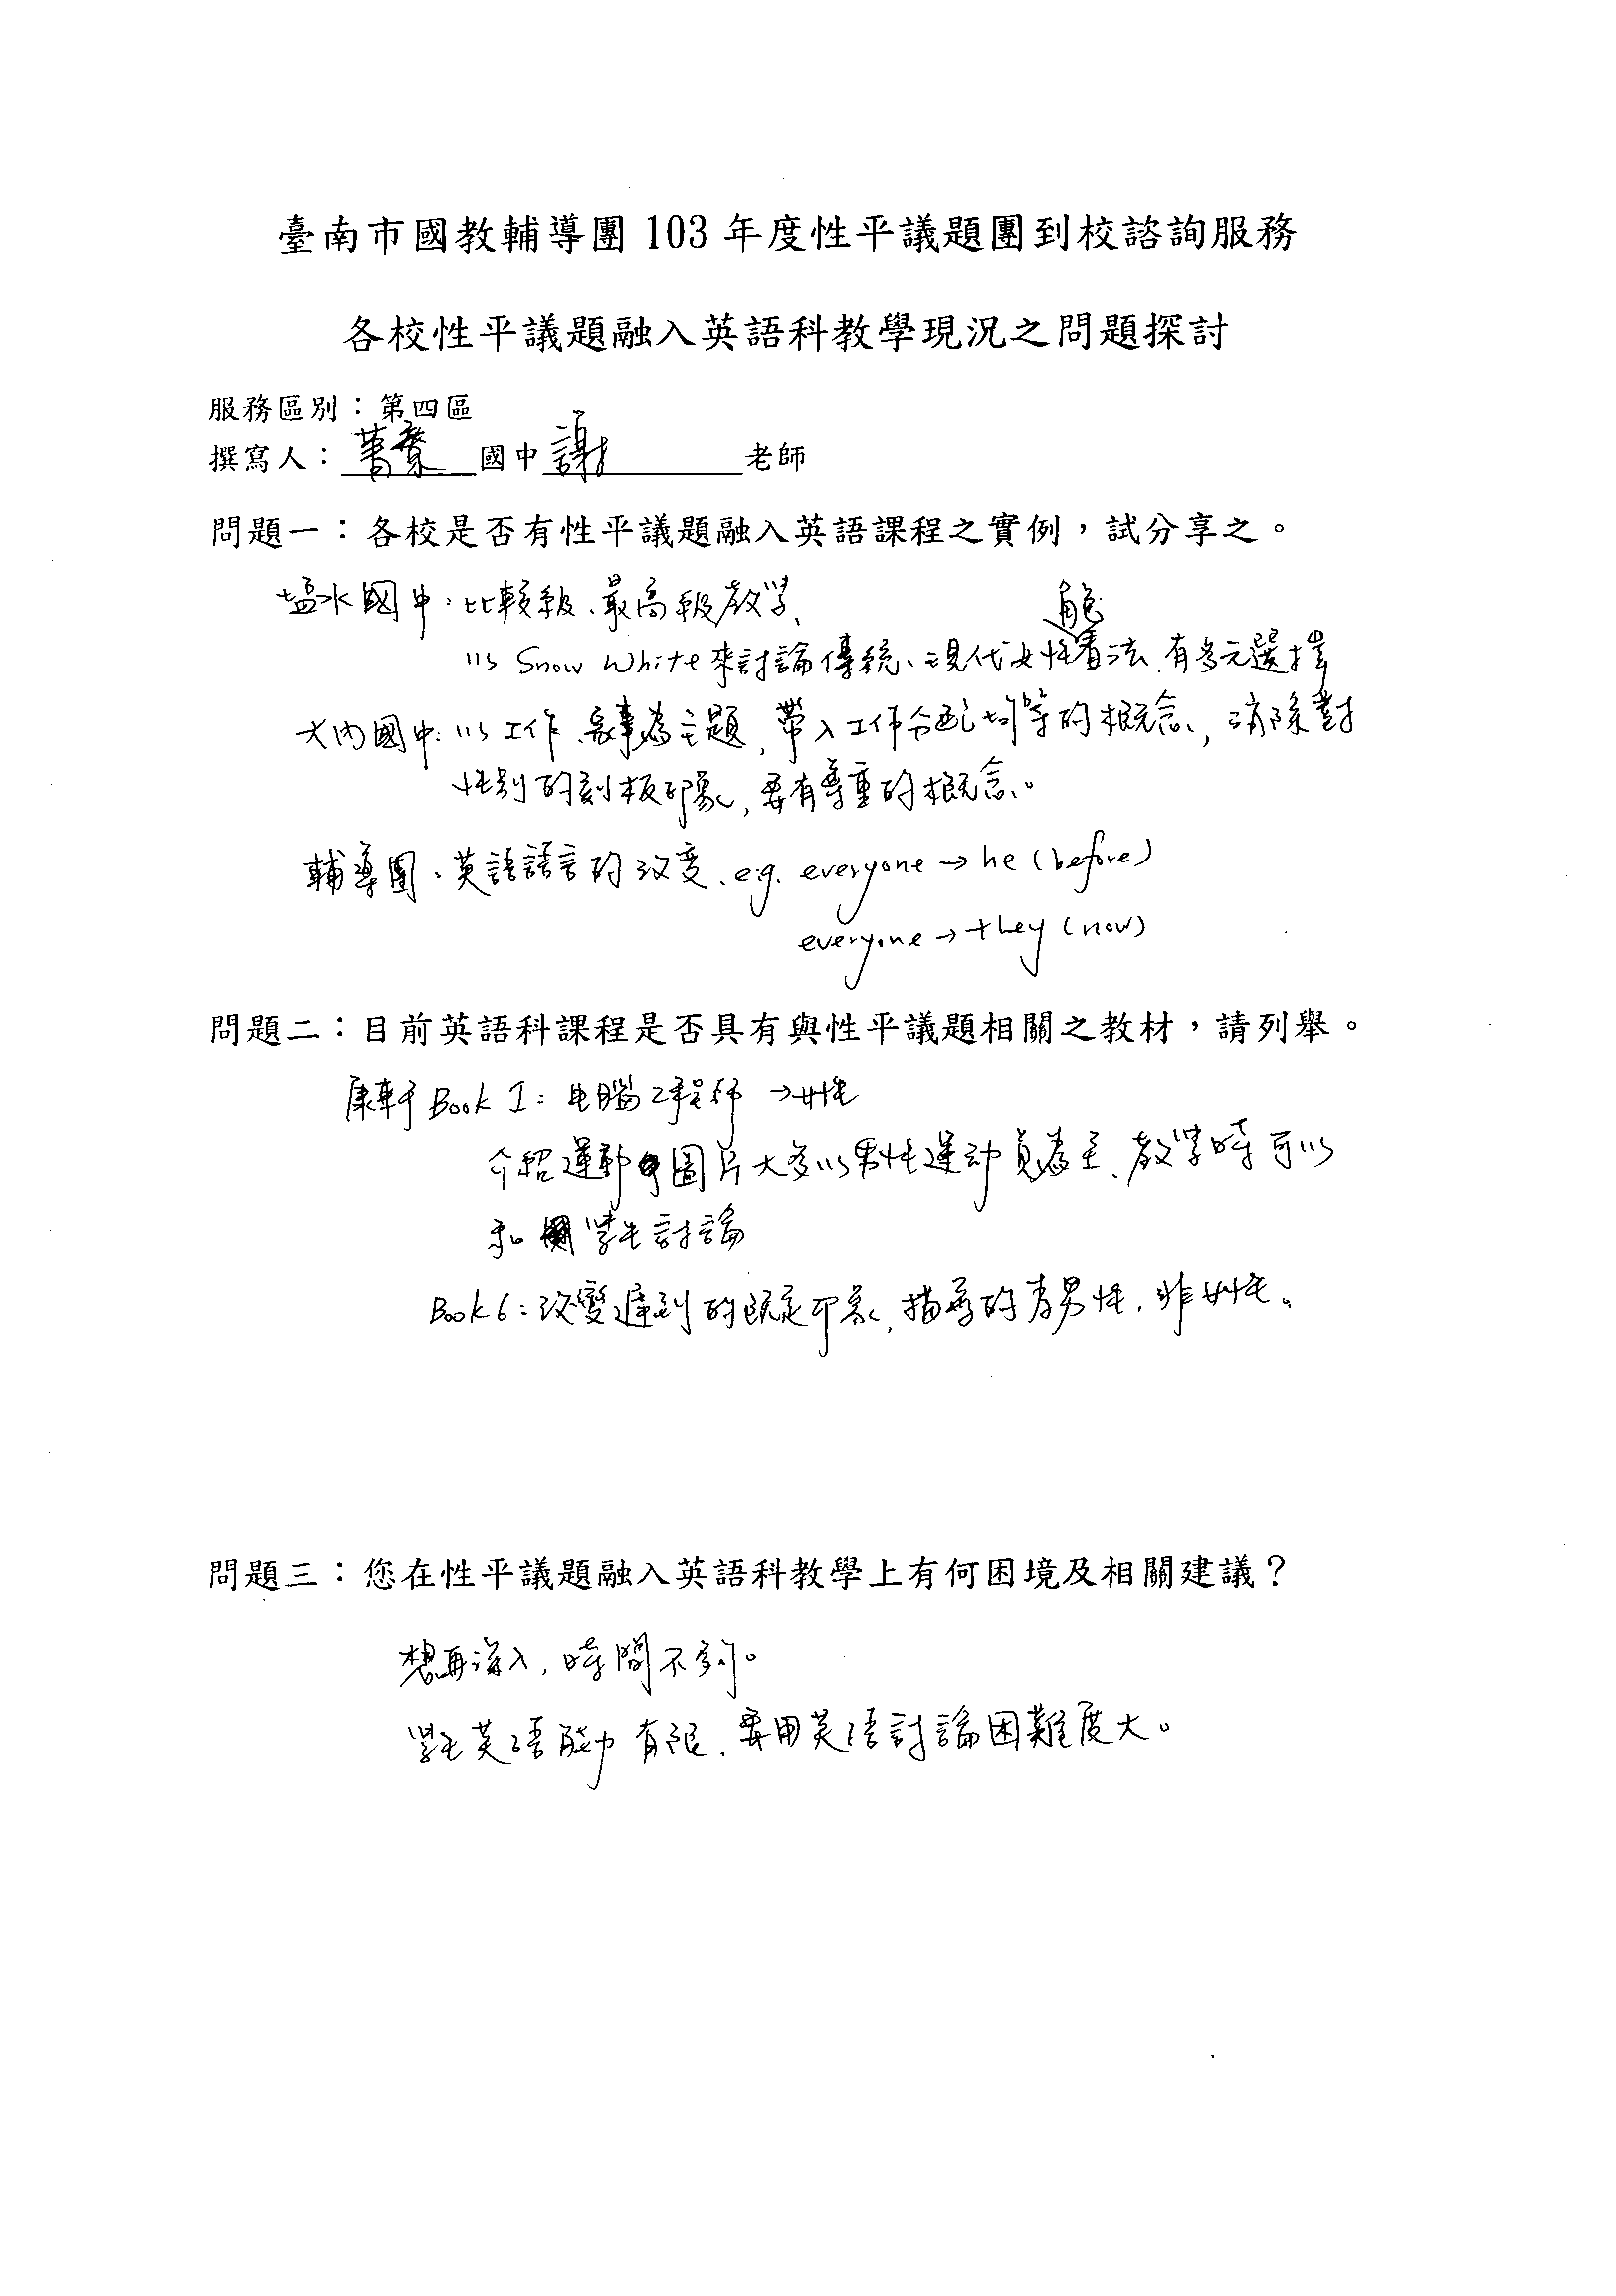 臺南市國教輔導團 103 年度性平議題團到校諮詢服務
各校性平議題融入英語科教學現況之問題探討
服務區別：第四區
撰寫人：菁寮國中謝老師
問題一：各校是否有性平議題融入英語課程之實例，試分享之。
塩水國中：比較級、最高級教學、
角色
以 Snow White 來討論傳統、現代女性看法、有多元選擇
大內國中：以工作、家事為主題，帶入工作分配均等的概念，消除對
性別的刻板印象，要有尊重的概念。
輔導團：英語語言的改变、e.g. everyone → he (before)
everyone → they (now)
問題二：目前英語科課程是否具有與性平議題相關之教材，請列舉。
康軒 Book 1：电腦工程師 → 女性
介紹運動圖片大多以男性運动員為主、教學時可以
和學生討論
Book 6：改變遲到的既定印象，描寫的為男性，非女性。
問題三：您在性平議題融入英語科教學上有何困境及相關建議？
想再深入，時間不夠。
學生英语能力有限，要用英语討論困難度大。